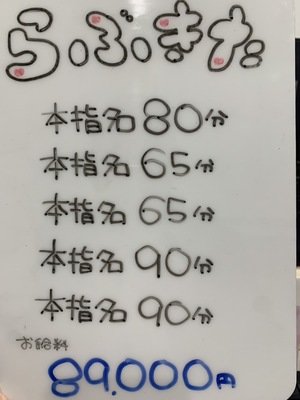 らぶきゅ
本指名80分
本指名65分
本指名65分
本指名90分
本指名90分
お給料
89.000円